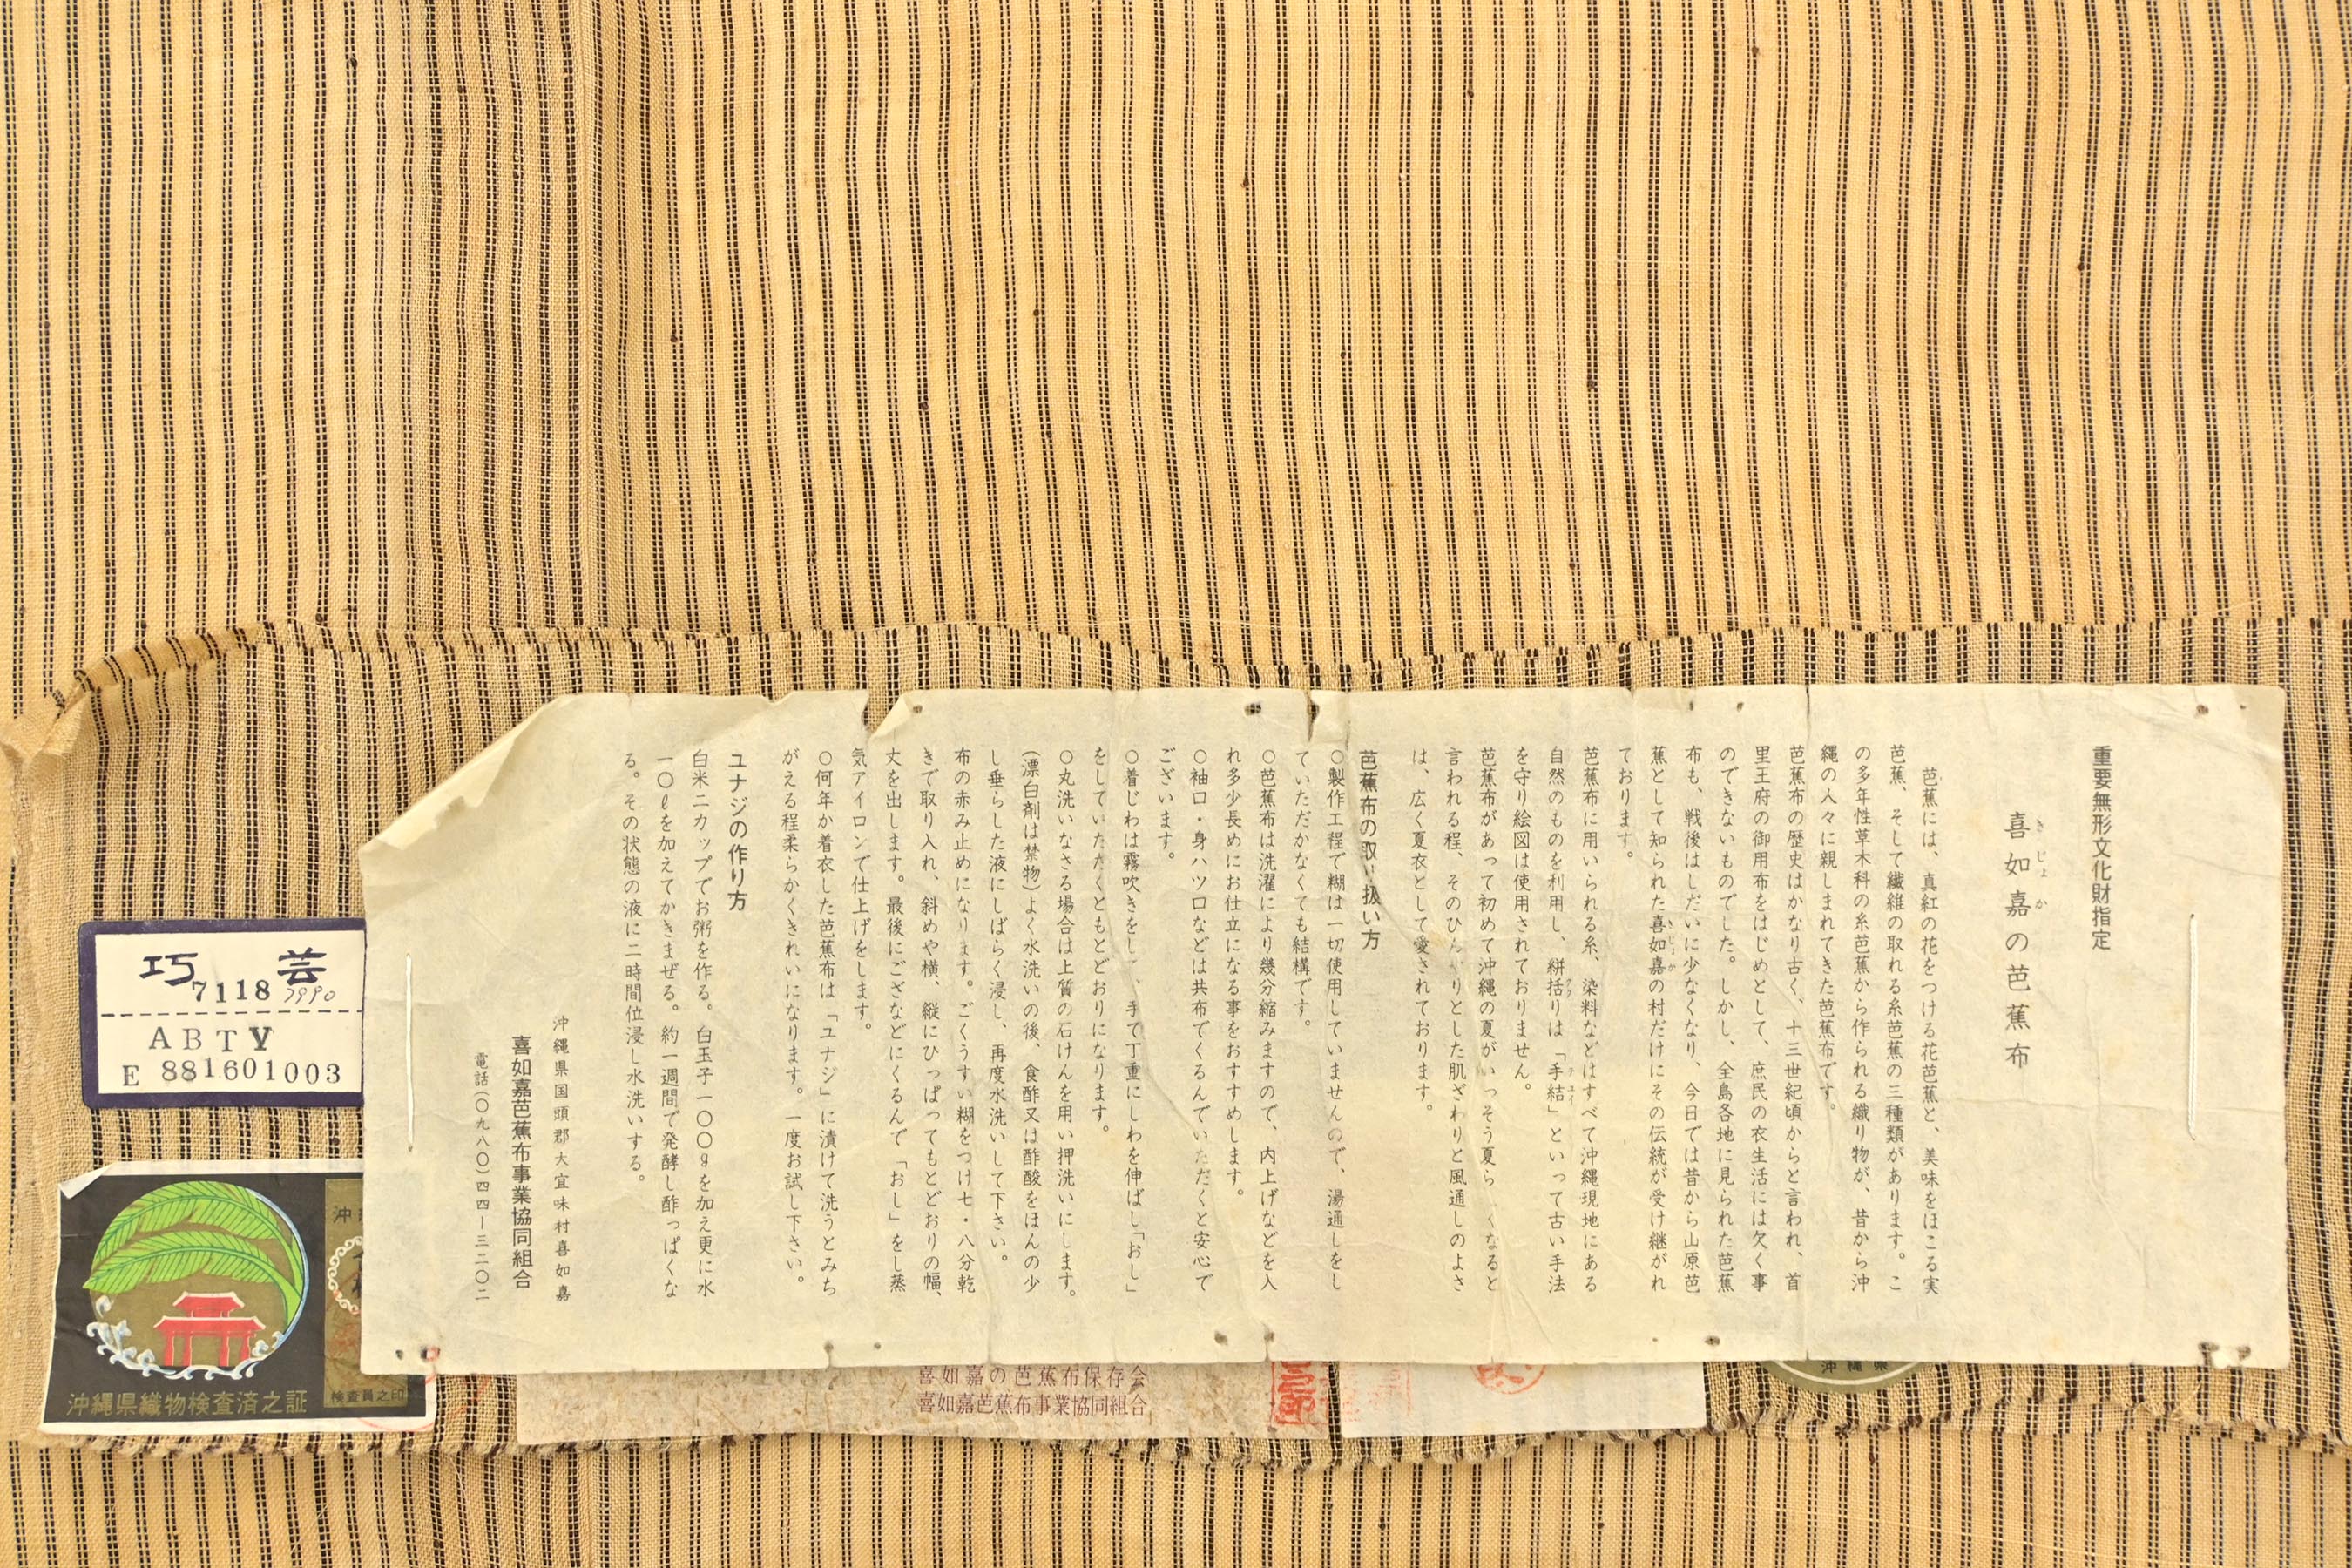 重要無形文化財指定
喜如嘉の芭蕉布
きじょか
芭蕉には、真紅の花をつける花芭蕉と、美味をほこる実
芭蕉、そして繊維の取れる糸芭蕉の三種類があります。こ
の多年性草木科の糸芭蕉から作られる織り物が、昔から沖
縄の人々に親しまれてきた芭蕉布です。
芭蕉布の歴史はかなり古く、十三世紀頃からと言われ、首
里王府の御用布をはじめとして、庶民の衣生活には欠く事
のできないものでした。しかし、全島各地に見られた芭蕉
布も、戦後はしだいに少なくなり、今日では昔から山原芭
蕉として知られた喜如嘉の村だけにその伝統が受け継がれ
ております。
芭蕉布に用いられる糸、染料などはすべて沖縄現地にある
自然のものを利用し、絣括りは「手結」といって古い手法
を守り絵図は使用されておりません。
芭蕉布があって初めて沖縄の夏がいっそう夏らしくなると
言われる程、そのひんやりとした肌ざわりと風通しのよさ
は、広く夏衣として愛されております。
芭蕉布の取り扱い方
○製作工程で糊は一切使用していませんので、湯通しをし
ていただかなくても結構です。
○芭蕉布は洗濯により幾分縮みますので、内上げなどを入
れ多少長めにお仕立になる事をおすすめします。
○袖口・身ハツ口などは共布でくるんでいただくと安心で
ございます。
○着じわは霧吹きをして、手で丁重にしわを伸ばし「おし」
をしていただくともとどおりになります。
○丸洗いなさる場合は上質の石けんを用い押洗いにします。
(漂白剤は禁物)よく水洗いの後、食酢又は酢酸をほんの少
し垂らした液にしばらく浸し、再度水洗いして下さい。
布の赤み止めになります。ごくうすい糊をつけ七・八分乾
きで取り入れ、斜めや横、縦にひっぱってもとどおりの幅、
丈を出します。最後にござなどにくるんで「おし」をし蒸
気アイロンで仕上げをします。
○何年か着衣した芭蕉布は「ユナジ」に漬けて洗うとみち
がえる程柔らかくきれいになります。一度お試し下さい。
ユナジの作り方
白米二カップでお粥を作る。白玉子一〇〇gを加え更に水
一〇ℓを加えてかきまぜる。約一週間で発酵し酢っぱくな
る。その状態の液に二時間位浸し水洗いする。
沖縄県国頭郡大宜味村喜如嘉
喜如嘉芭蕉布事業協同組合
電話(〇九八〇)四四ー三二〇二
巧芸
7118 7990
ABTY
E 881601003
沖縄県織物検査済之証
検査員之印
喜如嘉の芭蕉布保存会
喜如嘉芭蕉布事業協同組合
沖縄県